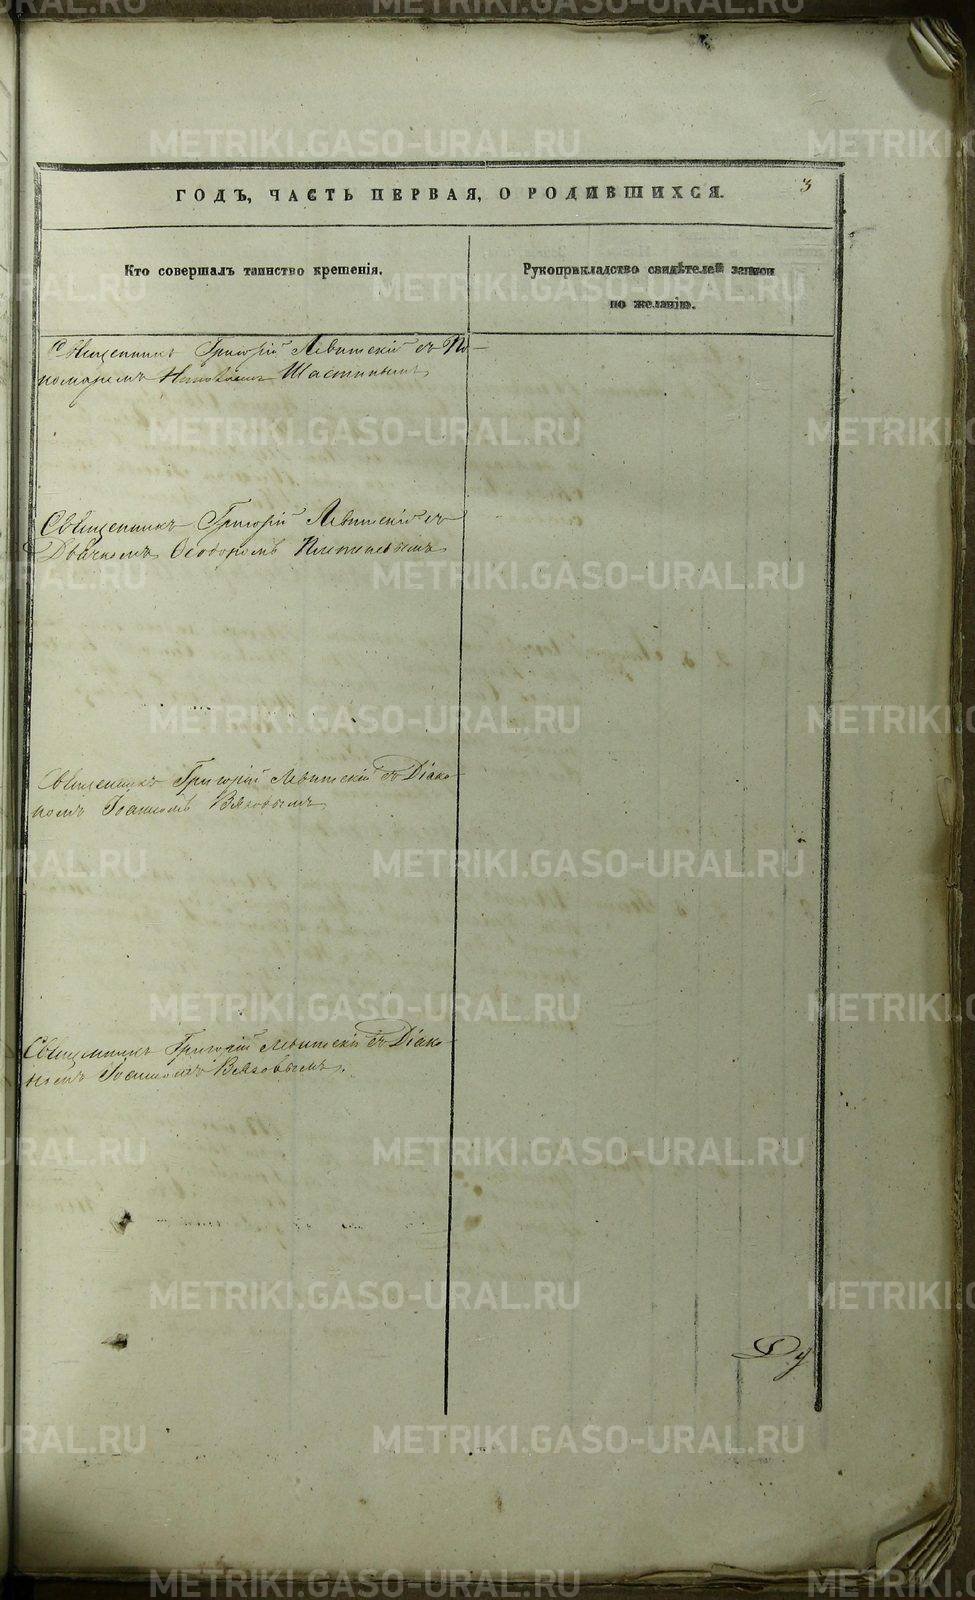 3
ГОДЪ, ЧАСТЬ ПЕРВАЯ, О РОДИВШИХСЯ.
Кто совершалъ таинство крещенія.
Рукоприкладство свидѣтелей записи
по желанію.
Священникъ Григорій Левитскій съ По-
номаремъ Николаемъ
Священникъ Григорій Левитскій съ
Дьячкомъ Ѳеодоромъ
Священникъ Григорій Левитскій съ Діако-
номъ Іоанномъ Вяховымъ
Священникъ Григорій Левитскій съ Діако-
номъ Іоанномъ Вяховымъ.
METRIKI.GASO-URAL.RU